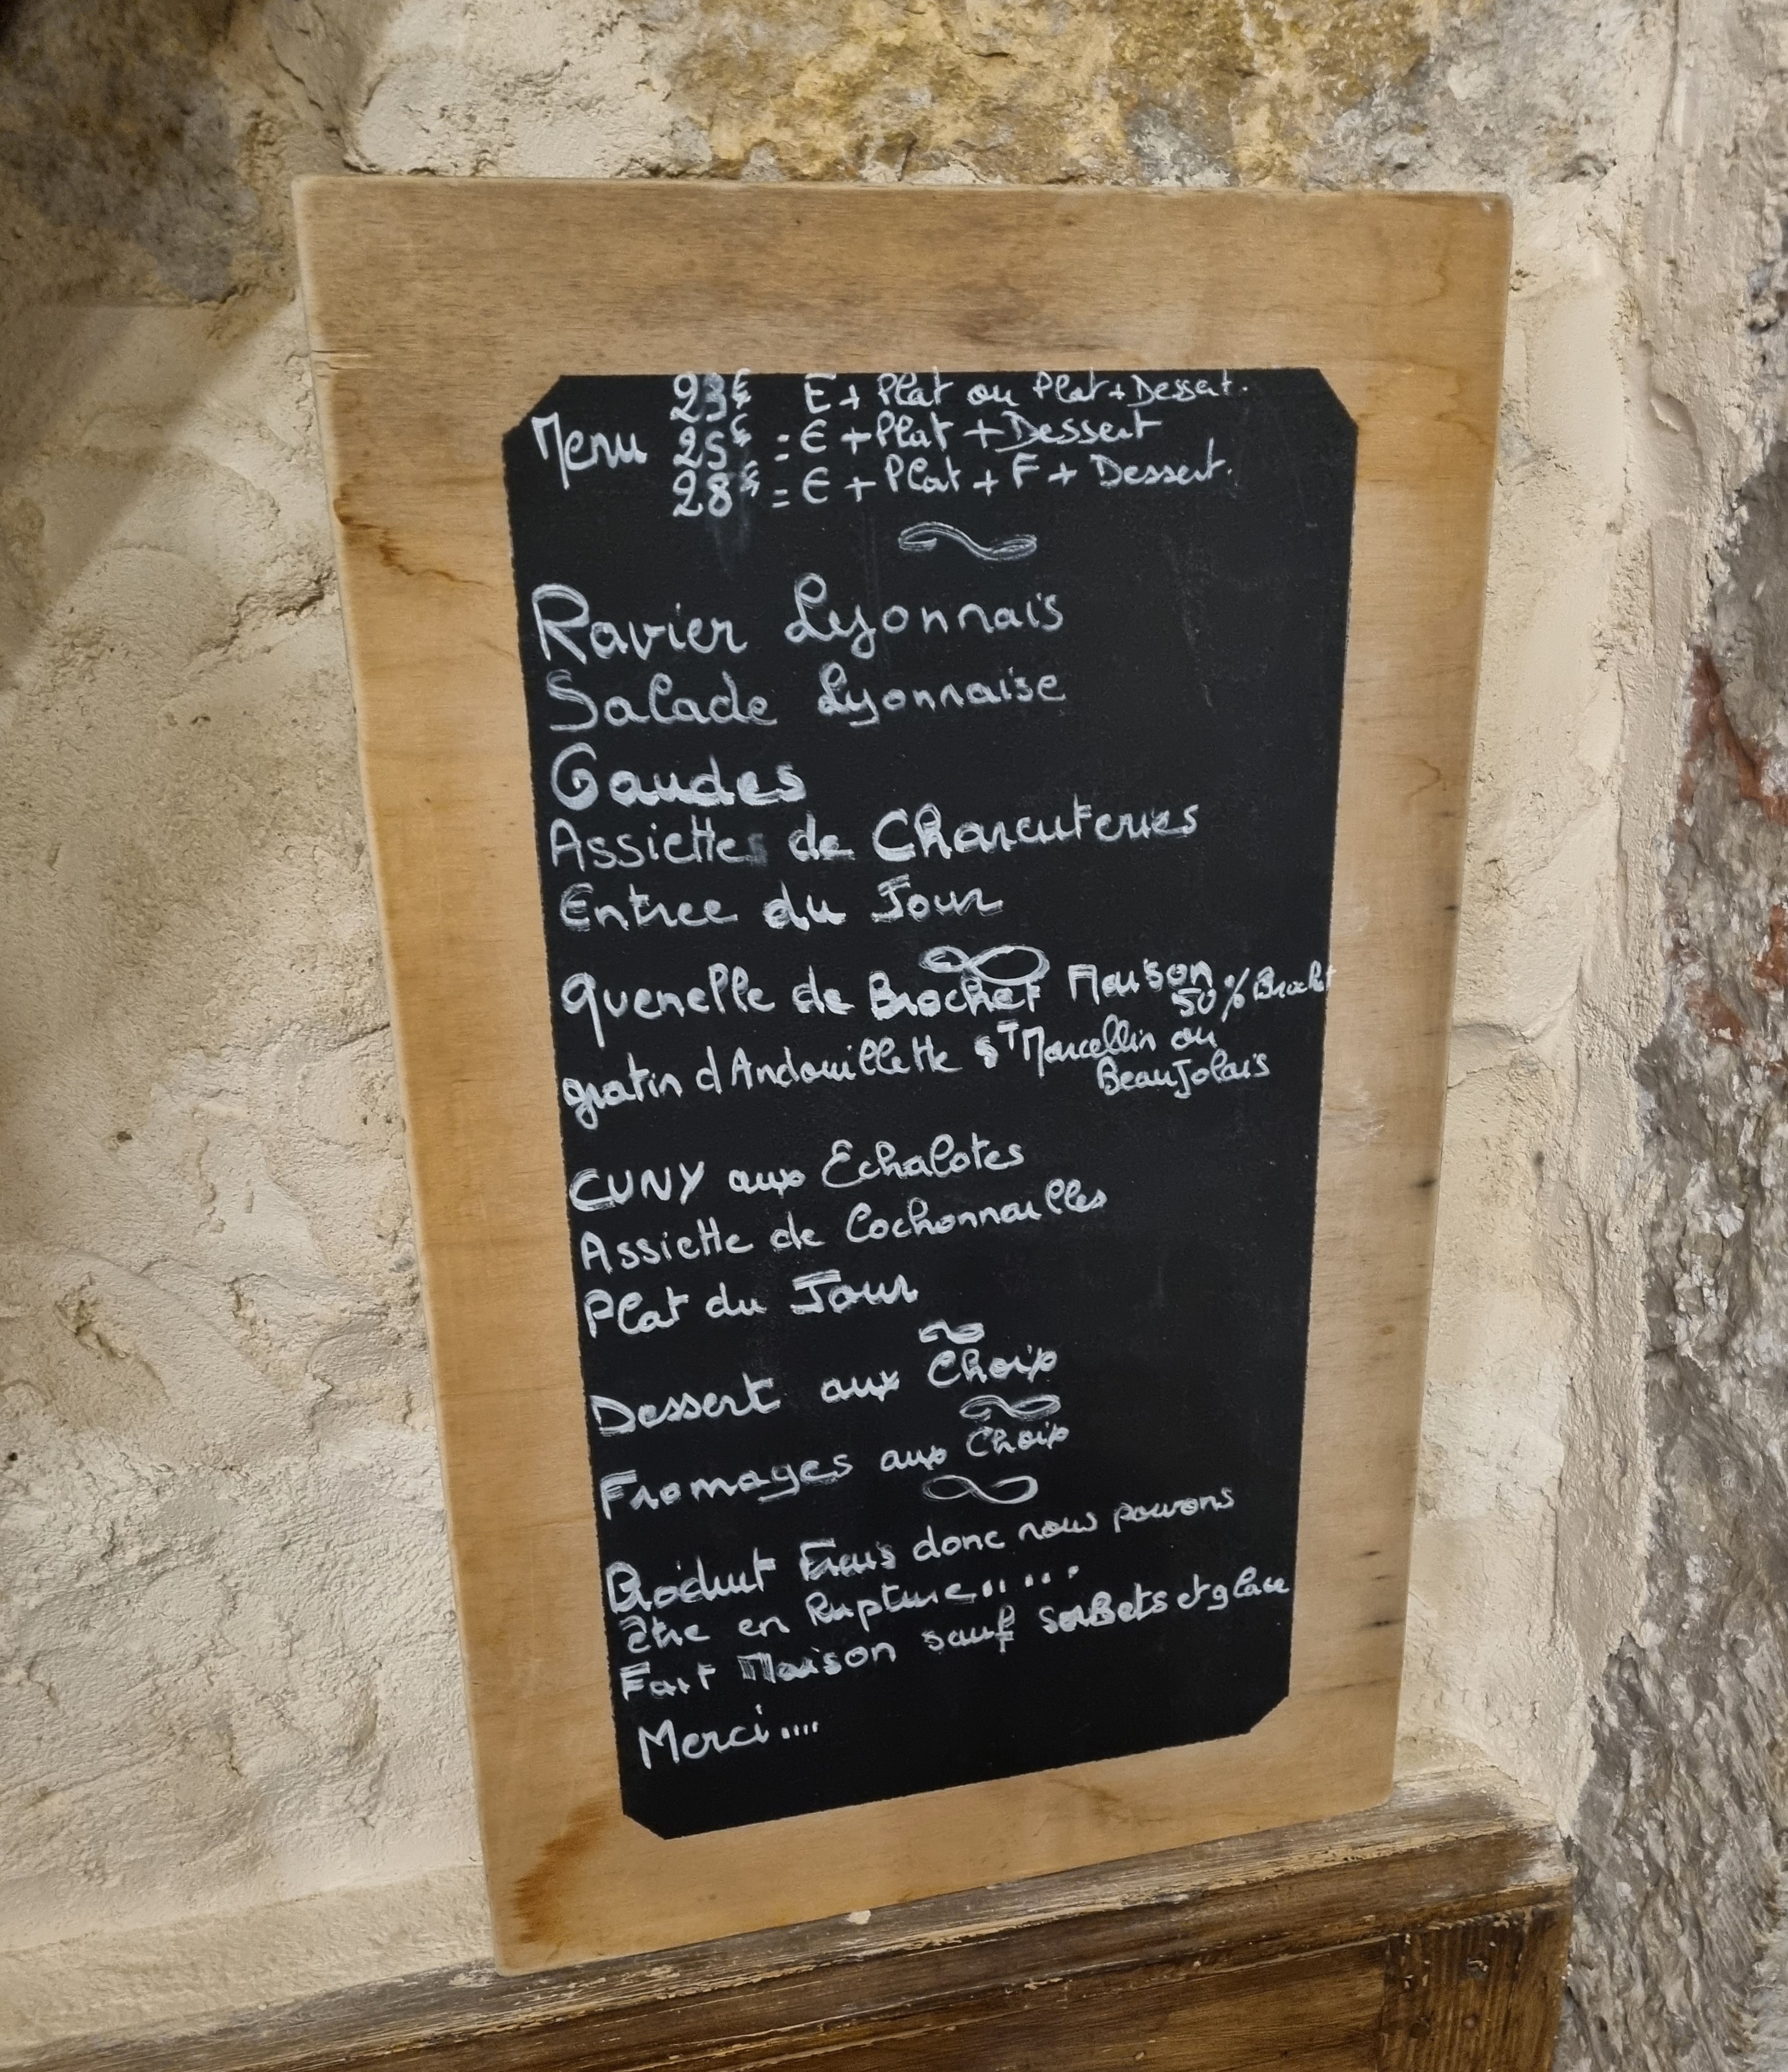 23€ E + Plat ou Plat + Dessert.
Menu 25€ = E + Plat + Dessert
28€ = E + Plat + F + Dessert.
Ravier Lyonnais
Salade Lyonnaise
Gaudes
Assiettes de Charcuteries
Entree du Jour
Quenelle de Brochet Maison
50% Brochet
gratin d'Andouillette St Marcellin ou
BeauJolais
CUNY aux Echalotes
Assiette de Cochonnailles
Plat du Jour
Dessert aux Choix
Fromages aux Choix
Produit Frais donc nous pouvons
être en Rupture......
Fait Maison sauf sorBets et glace
Merci....